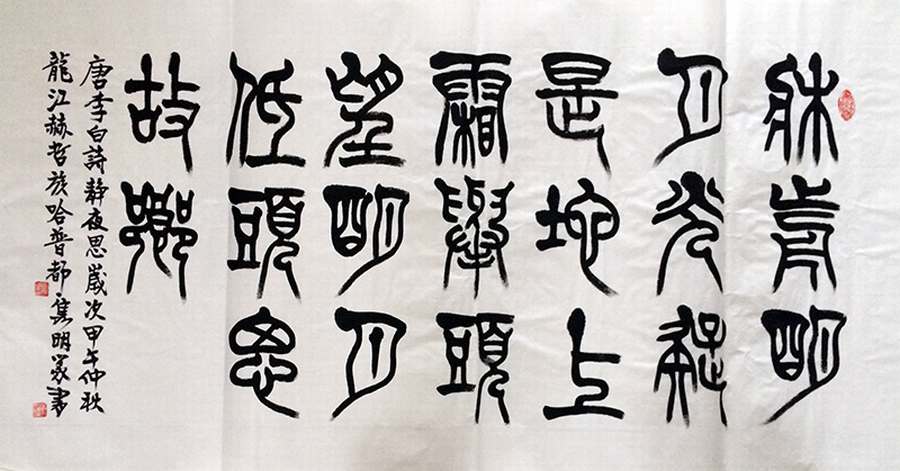 牀前明
月光疑
是地上
霜舉頭
望明月
低頭思
故鄉
唐李白詩静夜思歲次甲午仲秋
龍江赫哲族哈普都·隽明篆書